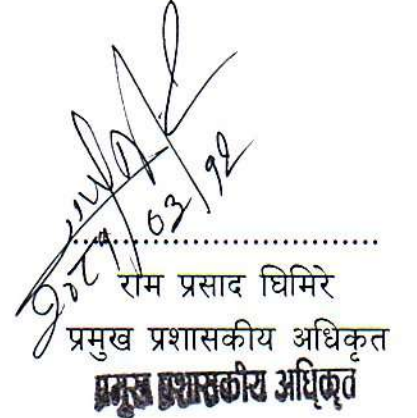 २०८१/०३/१२
राम प्रसाद घिमिरे
प्रमुख प्रशासकीय अधिकृत
प्रमुख प्रशासकीय अधिकृत